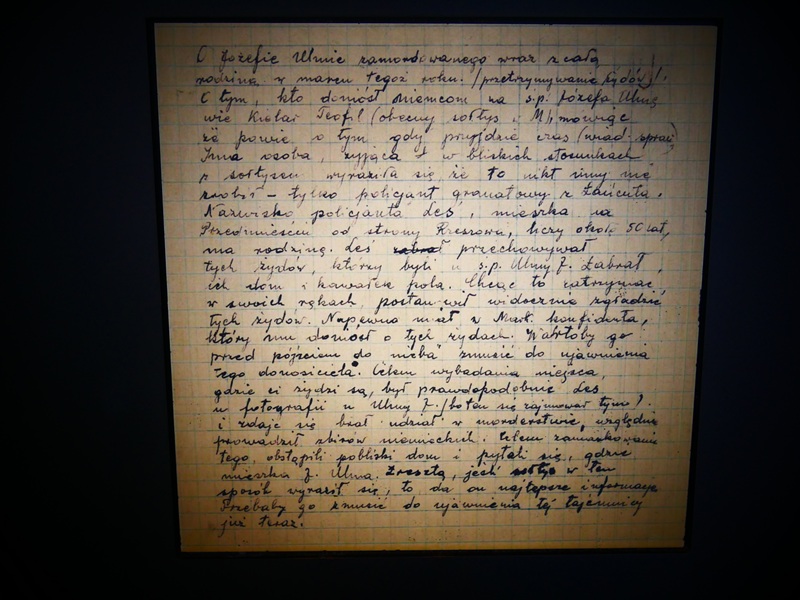 O Józefie Ulmie zamordowanego wraz z całą
rodziną w marcu tegoż roku. /przetrzymywanie żydów/.
O tym, kto doniósł niemcom na ś.p. Józefa Ulmę
wie Kielar Teofil (obecny sołtys w M) mówiąc
że powie o tym gdy przyjdzie czas (wiad. spraw)
Inna osoba, żyjąca w bliskich stosunkach
z sołtysem wyraziła się, że to nikt inny nie
zrobił – tylko policjant granatowy z Łańcuta.
Nazwisko policjanta Leś, mieszka na
Przedmieściu od strony Kreszowa, liczy około 50 lat,
ma rodzinę. Leś przechowywał
tych żydów, którzy byli u ś.p. Ulmy J. Zabrał
ich dom i kawałek pola. Chcąc to zatrzymać
w swoich rękach, postanowił widocznie zgładzić
tych żydów. Napewno miał w Mark. konfidenta,
który mu doniósł o tych żydach. Wartoby go
przed pójściem do nieba zmusić do ujawnienia
tego donosiciela. Celem wybadania miejsca,
gdzie ci żydzi są, był prawdopodobnie Leś
u fotografii u Ulmy J. /bo ten się zajmował tym/
i zdaje się brał udział w morderstwie, względnie
prowadził zbirów niemieckich. Celem zamaskowania
tego, obstąpili pobliski dom i pytali się, gdzie
mieszka J. Ulma. Zresztą, jeśli sołtys w ten
sposób wyraził się, to da on najlepsze informacje
Trzebaby go zmusić do ujawnienia tej tajemnicy
już teraz.